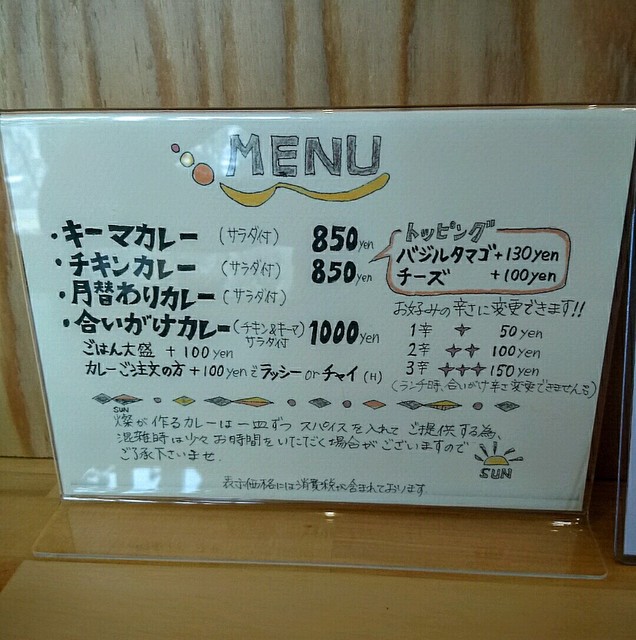 MENU
・キーマカレー (サラダ付) 850yen
・チキンカレー (サラダ付) 850yen
・月替わりカレー (サラダ付)
・合いがけカレー (チキン&キーマ) サラダ付 1000yen
ごはん大盛 +100yen
カレーご注文の方 +100yenでラッシー or チャイ (H)
トッピング
バジルタマゴ +130yen
チーズ +100yen
お好みの辛さに変更できます!!
1辛 50yen
2辛 100yen
3辛 150yen
(ランチ時、合いがけ辛さ変更できません)
SUN
燦が作るカレーは一皿ずつスパイスを入れてご提供する為、
混雑時は少々お時間をいただく場合がございますので
ご了承下さいませ。
SUN
表示価格には消費税が含まれております